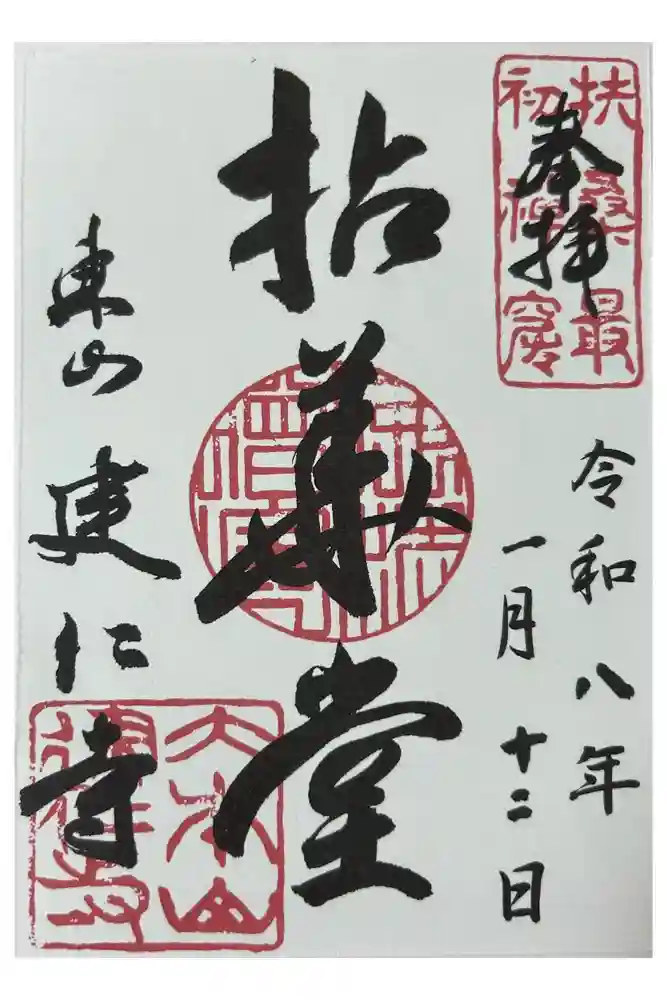 奉拝
扶桑最
初禅窟
令和八年
一月十二日
拈華堂
東山 建仁寺
大本山
建仁寺